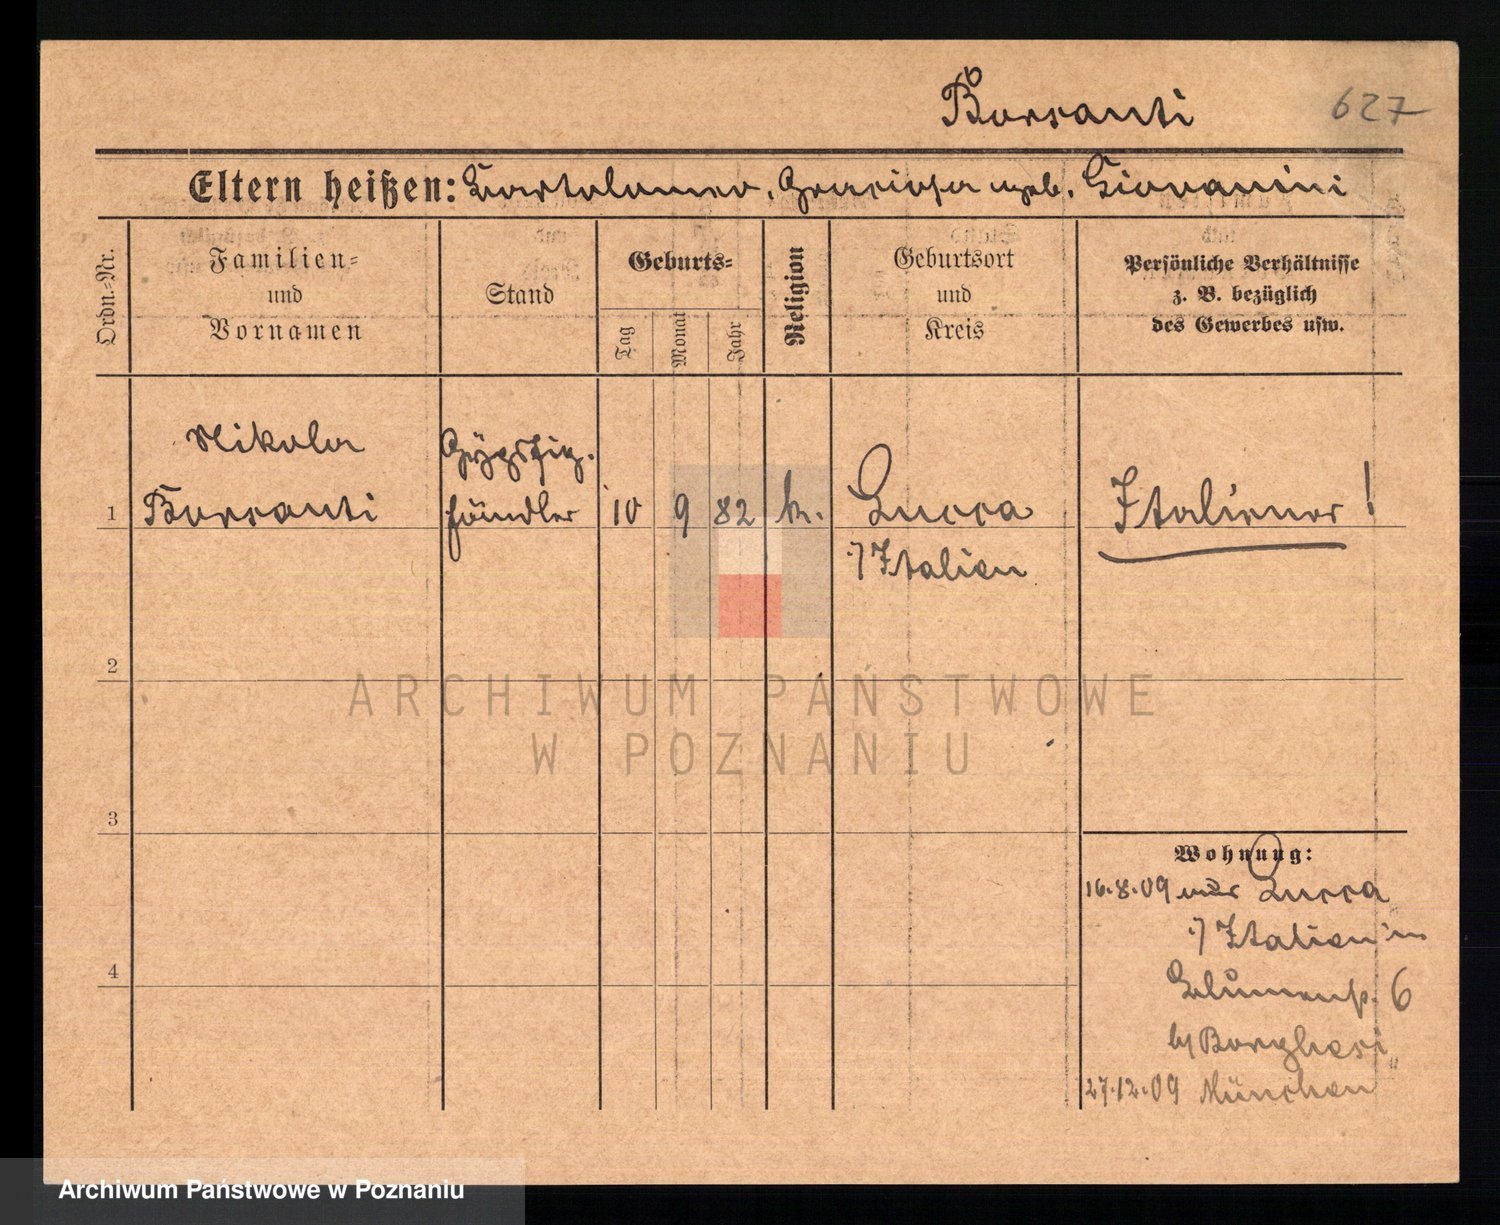 Borsanti 627
Eltern heißen: Bartolomeo, Graciosa geb. Giovanini
Ordn.=Nr.
Familien=
und
Vornamen
Stand
Geburts=
Tag
Monat
Jahr
Religion
Geburtsort
und
Kreis
Persönliche Verhältnisse
z. B. bezüglich
des Gewerbes usw.
Nikola Gypsfig.
1 Borsanti händler 10 9 82 k. Lucca Italiener!
i/ Italien
2
ARCHIWUM PAŃSTWOWE
W POZNANIU
3
Wohnung:
16.8.09 von Lucca
i/ Italien in
Blumenstr. 6
b/ Borghesi
4
27.12.09 München
Archiwum Państwowe w Poznaniu